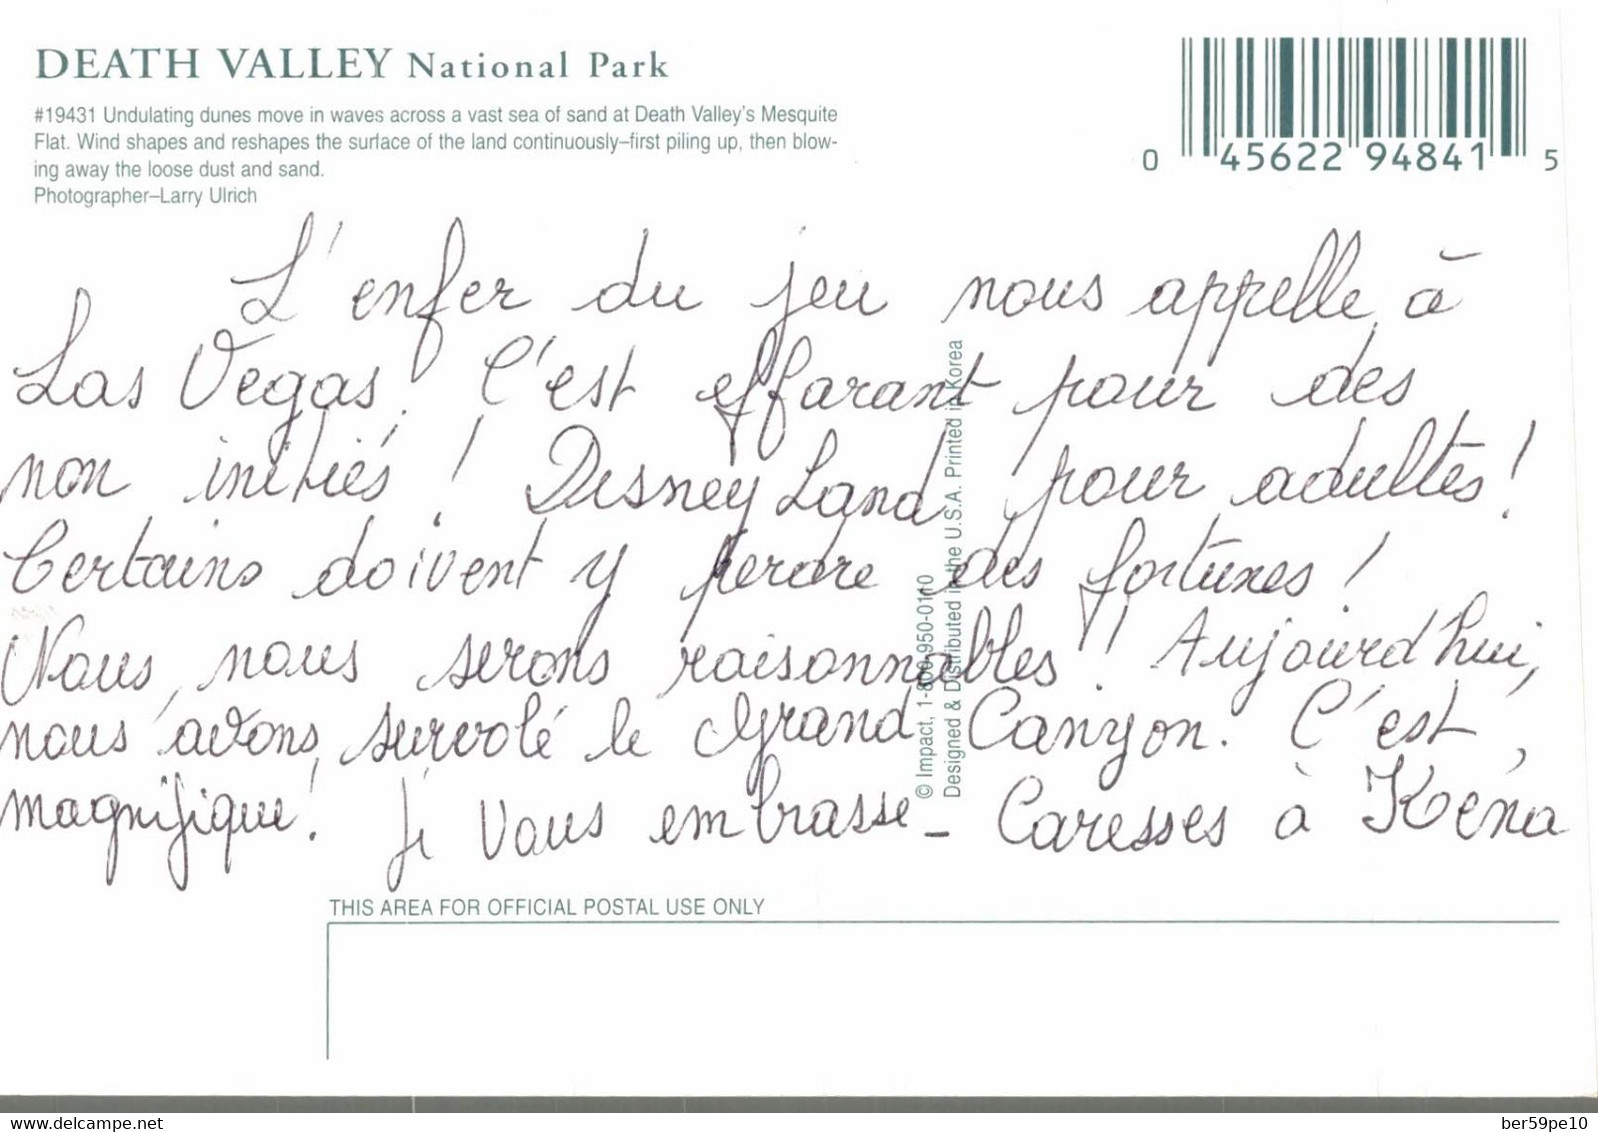 DEATH VALLEY National Park
#19431 Undulating dunes move in waves across a vast sea of sand at Death Valley's Mesquite
Flat. Wind shapes and reshapes the surface of the land continuously–first piling up, then blow-
ing away the loose dust and sand.
Photographer–Larry Ulrich
0 45622 94841 5
L'enfer du jeu nous appelle à
Las Vegas! C'est effarant pour des
non initiés! Disney Land pour adultes!
Certains doivent y perdre des fortunes!
Nous, nous serons raisonnables! Aujourd'hui,
nous avons survolé le Grand Canyon. C'est
magnifique! Je vous embrasse - Caresses à Kéna
© Impact, 1-800-950-0110
Designed & Distributed in the U.S.A. Printed in Korea
THIS AREA FOR OFFICIAL POSTAL USE ONLY
delcampe.net
ber59pe10